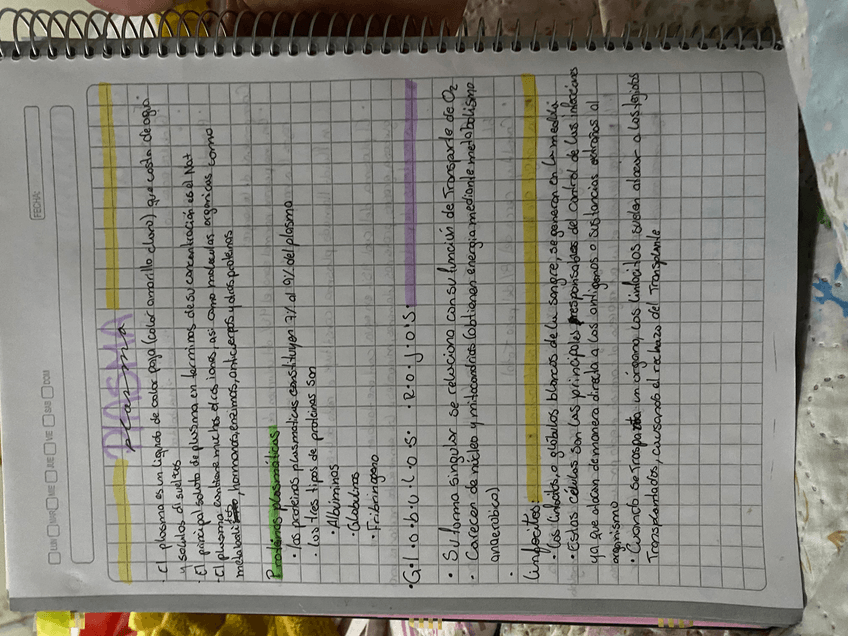 FECHA:
LUN MAR MIE JUE VIE SAB DOM
PLASMA
plasma
· El plasma es un liquido de color paja (color amarillo claro), que costa de agua
y solutos disueltos
· El principal soluto de plasma en terminos de su concentración es el Na+
· El plasma contiene muchos otros iones, asi como moleculas organicas como
metabolitos, hormonas, enzimas, anticuerpos y otras proteinas
Proteinas plasmáticas
· Las proteinas plasmaticas constituyen 7% al 9% del plasma
· Los tres tipos de proteinas son
· Albuminas
· Globulinas
· Fribrinogeno
·G·l·o·b·u·l·o·s· ·R·o·j·o·s·
· Su forma singular se relaciona con su función de Transporte de O2
· Carecen de núcleo y mitocondrias (obtienen energia mediante metabolismo
anaerobico)
·
Linfocitos:
· Los linfocitos, o glóbulos blancos de la sangre, se generan en la medula
· Estas células son las principales responsables del control de las infecciones
ya que atacan de manera directa a los antigenos o sustancias extrañas al
organismo
· Cuando se un organo, los linfocitos suelen atacar a los tejidos
Transplantados, causando el rechazo del Transplante